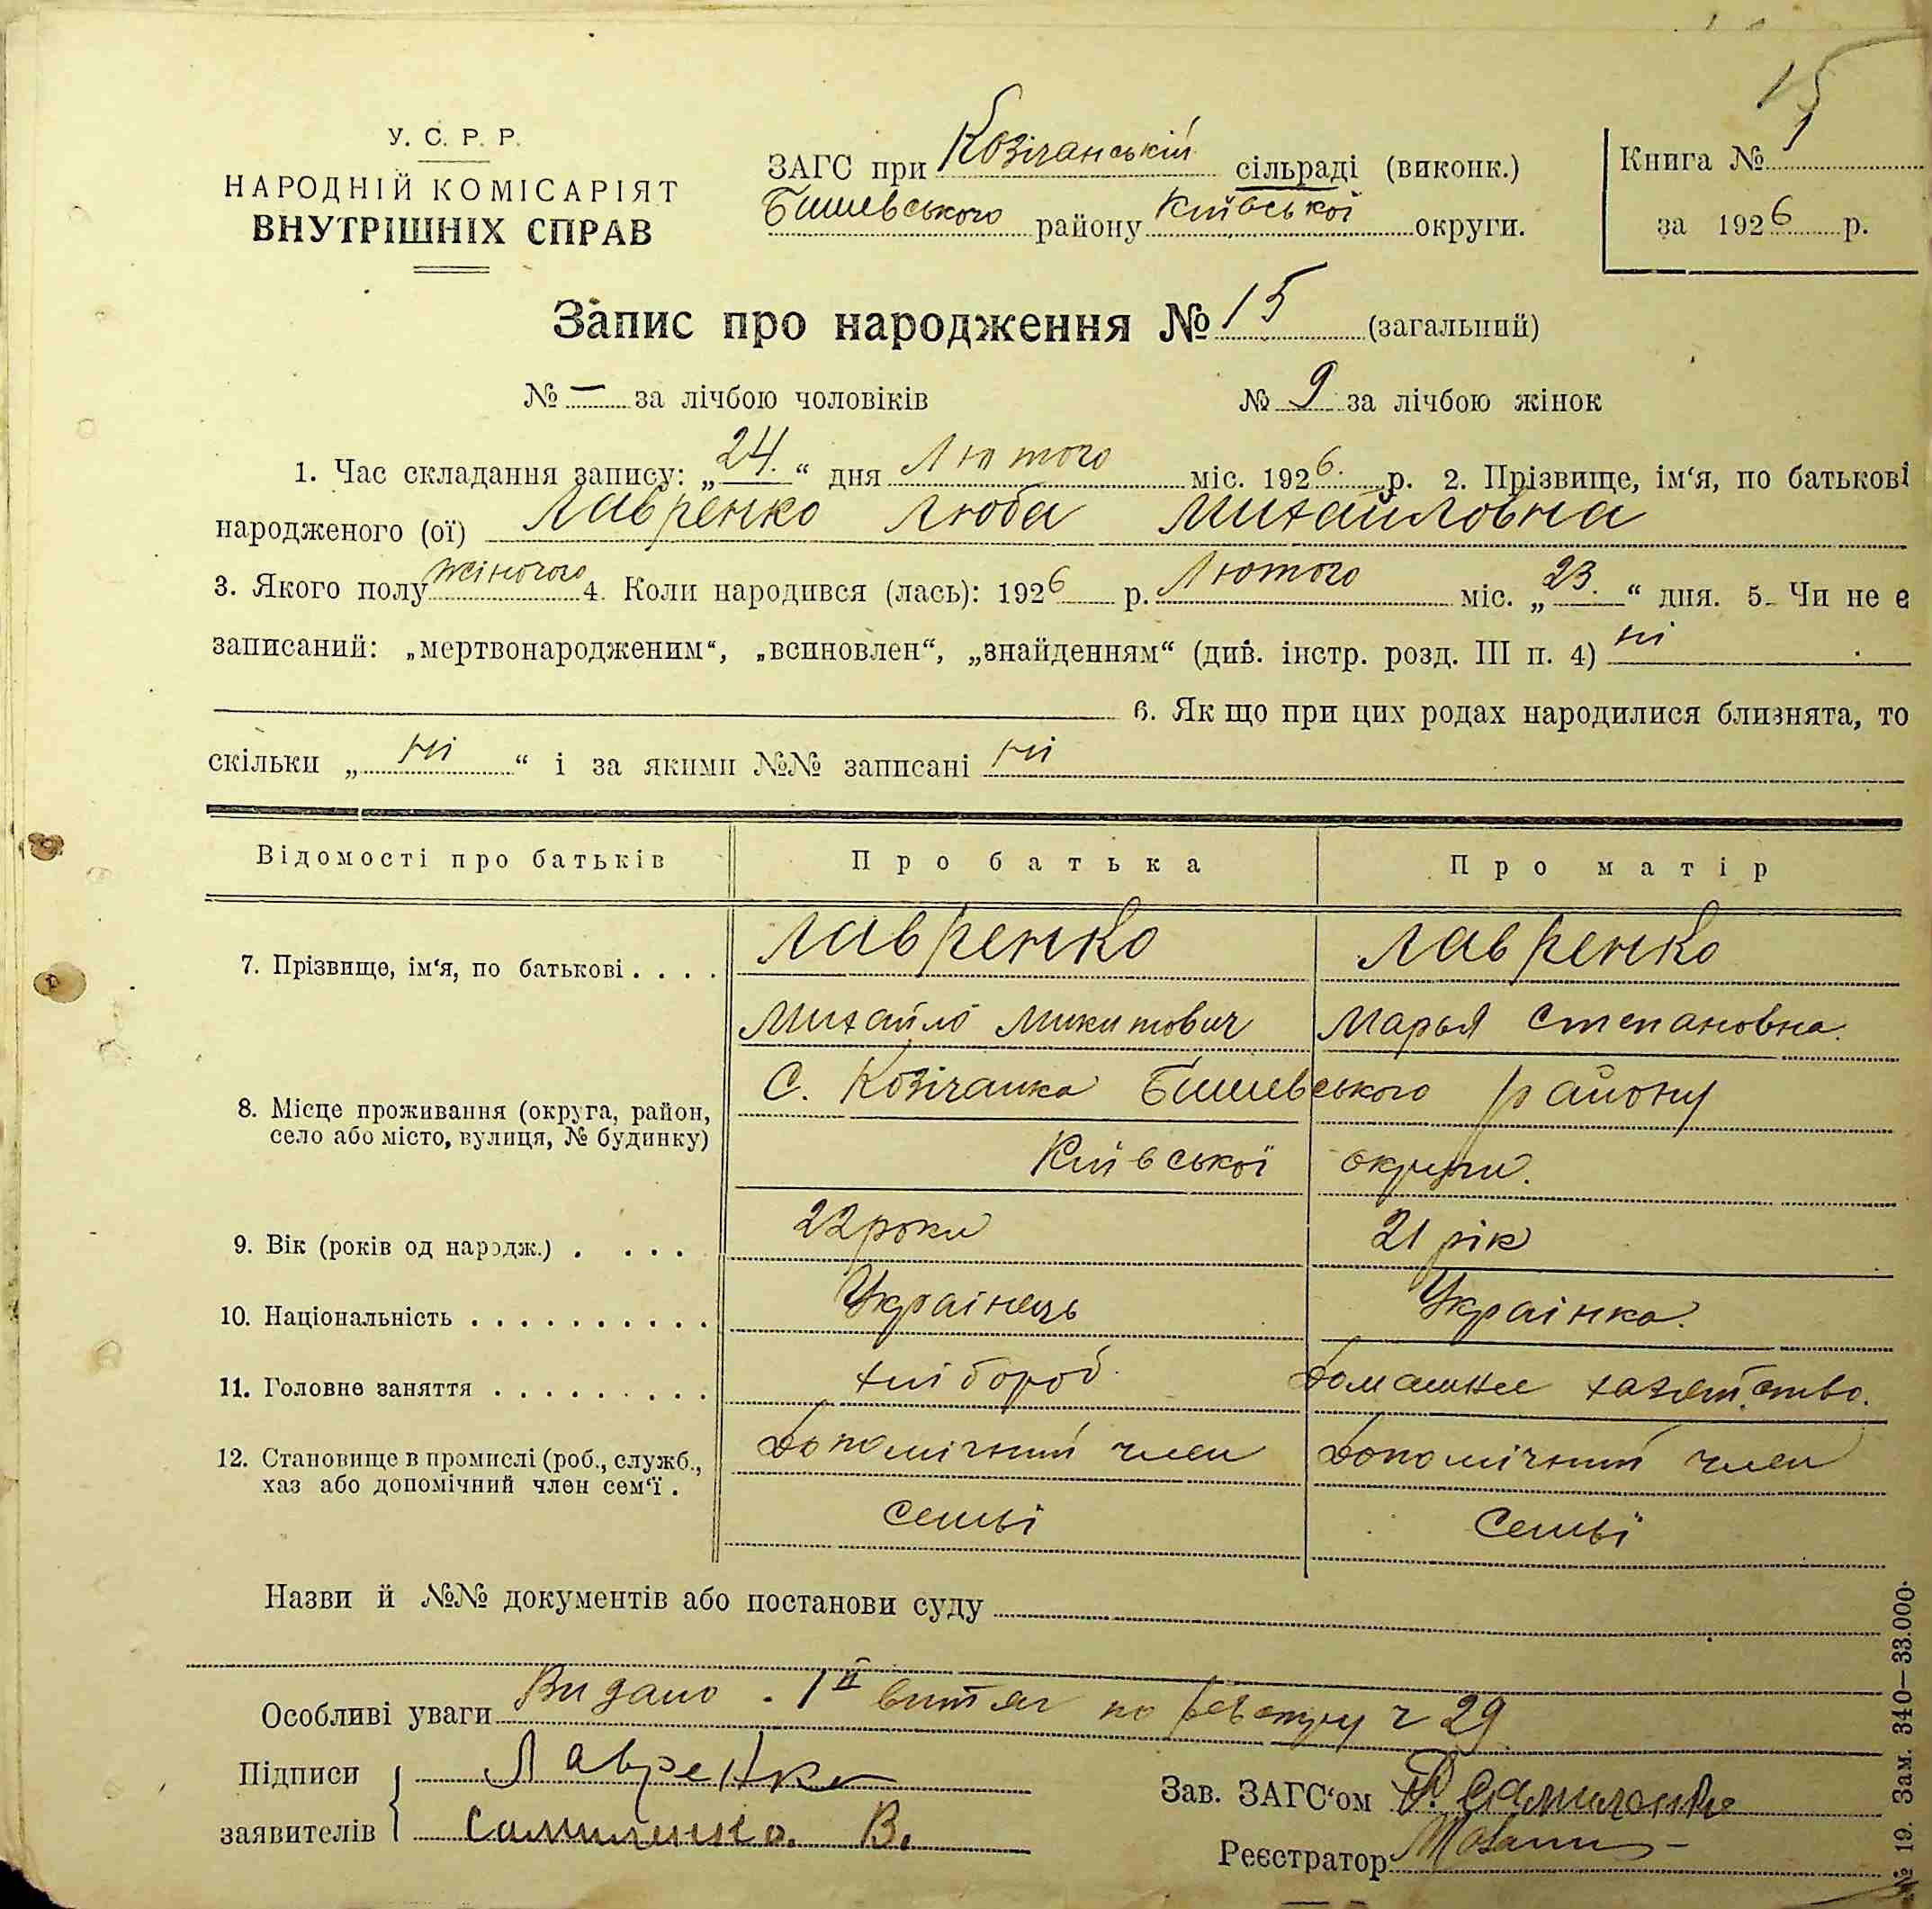 15
У. С. Р. Р.
НАРОДНІЙ КОМІСАРІЯТ
ВНУТРІШНІХ СПРАВ
ЗАГС при Козічанській сільраді (виконк.)
Бишевського району Київської округи.
Книга №
за 1926 р.
Запис про народження № 15 (загальний)
№ — за лічбою чоловіків № 9 за лічбою жінок
1. Час складання запису: „24.“ дня Лютого міс. 1926. р. 2. Прізвище, ім‘я, по батькові
народженого (ої) Лавренко Люба Михайловна
3. Якого полу жіночого 4. Коли народився (лась): 1926 р. Лютого міс. „23.“ дня. 5. Чи не є
записаний: „мертвонародженим“, „всиновлен“, „знайденням“ (див. інстр. розд. III п. 4) ні
6. Як що при цих родах народилися близнята, то
скільки „ ні “ і за якими №№ записані ні
Відомості про батьків Про батька Про матір
7. Прізвище, ім‘я, по батькові . . . . Лавренко Лавренко
Михайло Микитович Марья Степановна.
8. Місце проживання (округа, район, С. Козічанка Бишевського району
село або місто, вулиця, № будинку)
Київської округи.
9. Вік (років од народж.) . . . . 22 роки 21 рік
10. Національність . . . . . . . . . . Українець Українка.
11. Головне заняття . . . . . . . . . хлібороб. домашнее хазяйство.
12. Становище в промислі (роб., служб., допомічний член допомічний член
хаз або допомічний член сем‘ї .
семьі семьї
Назви й №№ документів або постанови суду
Особливі уваги Видано . 1й витяг по реєстру ч 29
Підписи Лавренко
заявителів Самиленко. В.
Зав. ЗАГС‘ом
Реєстратор
№ 19. Зам. 340—33.000.